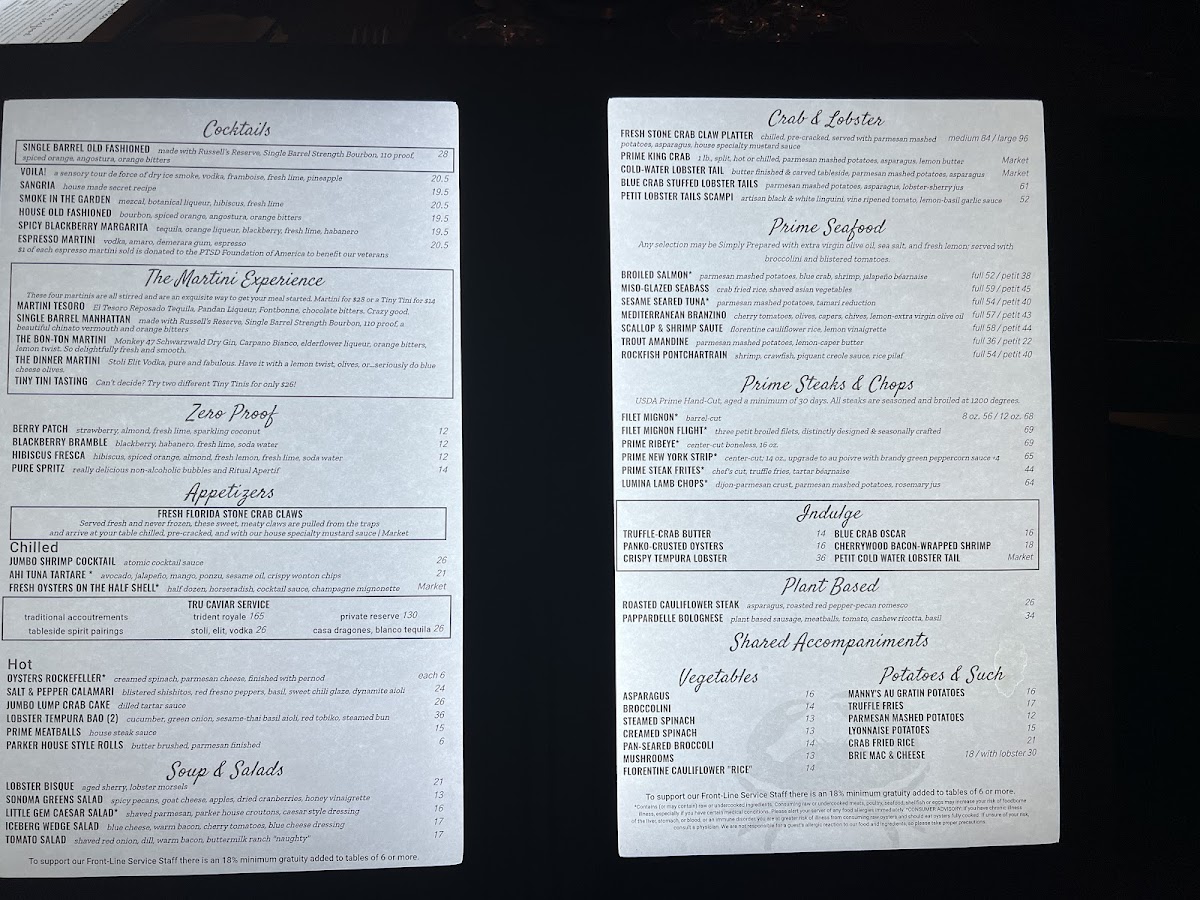 Cocktails
SINGLE BARREL OLD FASHIONED made with Russell's Reserve, Single Barrel Strength Bourbon, 110 proof, 28
spiced orange, angostura, orange bitters
VOILA! a sensory tour de force of dry ice smoke, vodka, framboise, fresh lime, pineapple 20.5
SANGRIA house made secret recipe 19.5
SMOKE IN THE GARDEN mezcal, botanical liqueur, hibiscus, fresh lime 20.5
HOUSE OLD FASHIONED bourbon, spiced orange, angostura, orange bitters 19.5
SPICY BLACKBERRY MARGARITA tequila, orange liqueur, blackberry, fresh lime, habanero 19.5
ESPRESSO MARTINI vodka, amaro, demerara gum, espresso 20.5
$1 of each espresso martini sold is donated to the PTSD Foundation of America to benefit our veterans
The Martini Experience
These four martinis are all stirred and are an exquisite way to get your meal started. Martini for $28 or a Tiny Tini for $14
MARTINI TESORO El Tesoro Reposado Tequila, Pandan Liqueur, Fontbonne, chocolate bitters. Crazy good.
SINGLE BARREL MANHATTAN made with Russell's Reserve, Single Barrel Strength Bourbon, 110 proof, a
beautiful chinato vermouth and orange bitters
THE BON-TON MARTINI Monkey 47 Schwarzwald Dry Gin, Carpano Bianco, elderflower liqueur, orange bitters,
lemon twist. So delightfully fresh and smooth.
THE DINNER MARTINI Stoli Elit Vodka, pure and fabulous. Have it with a lemon twist, olives, or...seriously do blue
cheese olives.
TINY TINI TASTING Can't decide? Try two different Tiny Tinis for only $26!
Zero Proof
BERRY PATCH strawberry, almond, fresh lime, sparkling coconut 12
BLACKBERRY BRAMBLE blackberry, habanero, fresh lime, soda water 12
HIBISCUS FRESCA hibiscus, spiced orange, almond, fresh lemon, fresh lime, soda water 12
PURE SPRITZ really delicious non-alcoholic bubbles and Ritual Apertif 14
Appetizers
FRESH FLORIDA STONE CRAB CLAWS
Served fresh and never frozen, these sweet, meaty claws are pulled from the traps
and arrive at your table chilled, pre-cracked, and with our house specialty mustard sauce | Market
Chilled
JUMBO SHRIMP COCKTAIL atomic cocktail sauce 26
AHI TUNA TARTARE * avocado, jalapeño, mango, ponzu, sesame oil, crispy wonton chips 21
FRESH OYSTERS ON THE HALF SHELL* half dozen, horseradish, cocktail sauce, champagne mignonette Market
TRU CAVIAR SERVICE
traditional accoutrements trident royale 165 private reserve 130
tableside spirit pairings stoli, elit, vodka 26 casa dragones, blanco tequila 26
Hot
OYSTERS ROCKEFELLER* creamed spinach, parmesan cheese, finished with pernod each 6
SALT & PEPPER CALAMARI blistered shishitos, red fresno peppers, basil, sweet chili glaze, dynamite aioli 24
JUMBO LUMP CRAB CAKE dilled tartar sauce 26
LOBSTER TEMPURA BAO (2) cucumber, green onion, sesame-thai basil aioli, red tobiko, steamed bun 36
PRIME MEATBALLS house steak sauce 15
PARKER HOUSE STYLE ROLLS butter brushed, parmesan finished 6
Soup & Salads
LOBSTER BISQUE aged sherry, lobster morsels 21
SONOMA GREENS SALAD spicy pecans, goat cheese, apples, dried cranberries, honey vinaigrette 13
LITTLE GEM CAESAR SALAD* shaved parmesan, parker house croutons, caesar style dressing 16
ICEBERG WEDGE SALAD blue cheese, warm bacon, cherry tomatoes, blue cheese dressing 17
TOMATO SALAD shaved red onion, dill, warm bacon, buttermilk ranch "naughty" 17
To support our Front-Line Service Staff there is an 18% minimum gratuity added to tables of 6 or more.
Crab & Lobster
FRESH STONE CRAB CLAW PLATTER chilled, pre-cracked, served with parmesan mashed medium 84 / large 96
potatoes, asparagus, house specialty mustard sauce
PRIME KING CRAB 1 lb., split, hot or chilled, parmesan mashed potatoes, asparagus, lemon butter Market
COLD-WATER LOBSTER TAIL butter finished & carved tableside, parmesan mashed potatoes, asparagus Market
BLUE CRAB STUFFED LOBSTER TAILS parmesan mashed potatoes, asparagus, lobster-sherry jus 61
PETIT LOBSTER TAILS SCAMPI artisan black & white linguini, vine ripened tomato, lemon-basil garlic sauce 52
Prime Seafood
Any selection may be Simply Prepared with extra virgin olive oil, sea salt, and fresh lemon; served with
broccolini and blistered tomatoes.
BROILED SALMON* parmesan mashed potatoes, blue crab, shrimp, jalapeño béarnaise full 52 / petit 38
MISO-GLAZED SEABASS crab fried rice, shaved asian vegetables full 59 / petit 45
SESAME SEARED TUNA* parmesan mashed potatoes, tamari reduction full 54 / petit 40
MEDITERRANEAN BRANZINO cherry tomatoes, olives, capers, chives, lemon-extra virgin olive oil full 57 / petit 43
SCALLOP & SHRIMP SAUTE florentine cauliflower rice, lemon vinaigrette full 58 / petit 44
TROUT AMANDINE parmesan mashed potatoes, lemon-caper butter full 36 / petit 22
ROCKFISH PONTCHARTRAIN shrimp, crawfish, piquant creole sauce, rice pilaf full 54 / petit 40
Prime Steaks & Chops
USDA Prime Hand-Cut, aged a minimum of 30 days. All steaks are seasoned and broiled at 1200 degrees.
FILET MIGNON* barrel-cut 8 oz. 56 / 12 oz. 68
FILET MIGNON FLIGHT* three petit broiled filets, distinctly designed & seasonally crafted 69
PRIME RIBEYE* center-cut boneless, 16 oz. 69
PRIME NEW YORK STRIP* center-cut, 14 oz., upgrade to au poivre with brandy green peppercorn sauce +4 65
PRIME STEAK FRITES* chef's cut, truffle fries, tartar béarnaise 44
LUMINA LAMB CHOPS* dijon-parmesan crust, parmesan mashed potatoes, rosemary jus 64
Indulge
TRUFFLE-CRAB BUTTER 14 BLUE CRAB OSCAR 16
PANKO-CRUSTED OYSTERS 16 CHERRYWOOD BACON-WRAPPED SHRIMP 18
CRISPY TEMPURA LOBSTER 36 PETIT COLD WATER LOBSTER TAIL Market
Plant Based
ROASTED CAULIFLOWER STEAK asparagus, roasted red pepper-pecan romesco 26
PAPPARDELLE BOLOGNESE plant based sausage, meatballs, tomato, cashew ricotta, basil 34
Shared Accompaniments
Vegetables
ASPARAGUS 16
BROCCOLINI 14
STEAMED SPINACH 13
CREAMED SPINACH 13
PAN-SEARED BROCCOLI 14
MUSHROOMS 13
FLORENTINE CAULIFLOWER "RICE" 14
Potatoes & Such
MANNY'S AU GRATIN POTATOES 16
TRUFFLE FRIES 17
PARMESAN MASHED POTATOES 12
LYONNAISE POTATOES 15
CRAB FRIED RICE 21
BRIE MAC & CHEESE 18 / with lobster 30
To support our Front-Line Service Staff there is an 18% minimum gratuity added to tables of 6 or more.
*Contains (or may contain) raw or undercooked ingredients. Consuming raw or undercooked meats, poultry, seafood, shellfish or eggs may increase your risk of foodborne
illness, especially if you have certain medical conditions. Please alert your server of any food allergies immediately. *CONSUMER ADVISORY: If you have chronic illness
of the liver, stomach, or blood, or an immune disorder, you are at greater risk of illness from consuming raw oysters and should eat oysters fully cooked. If unsure of your risk,
consult a physician. We are not responsible for a guest's allergic reaction to our food and ingredients, so please take proper precautions.